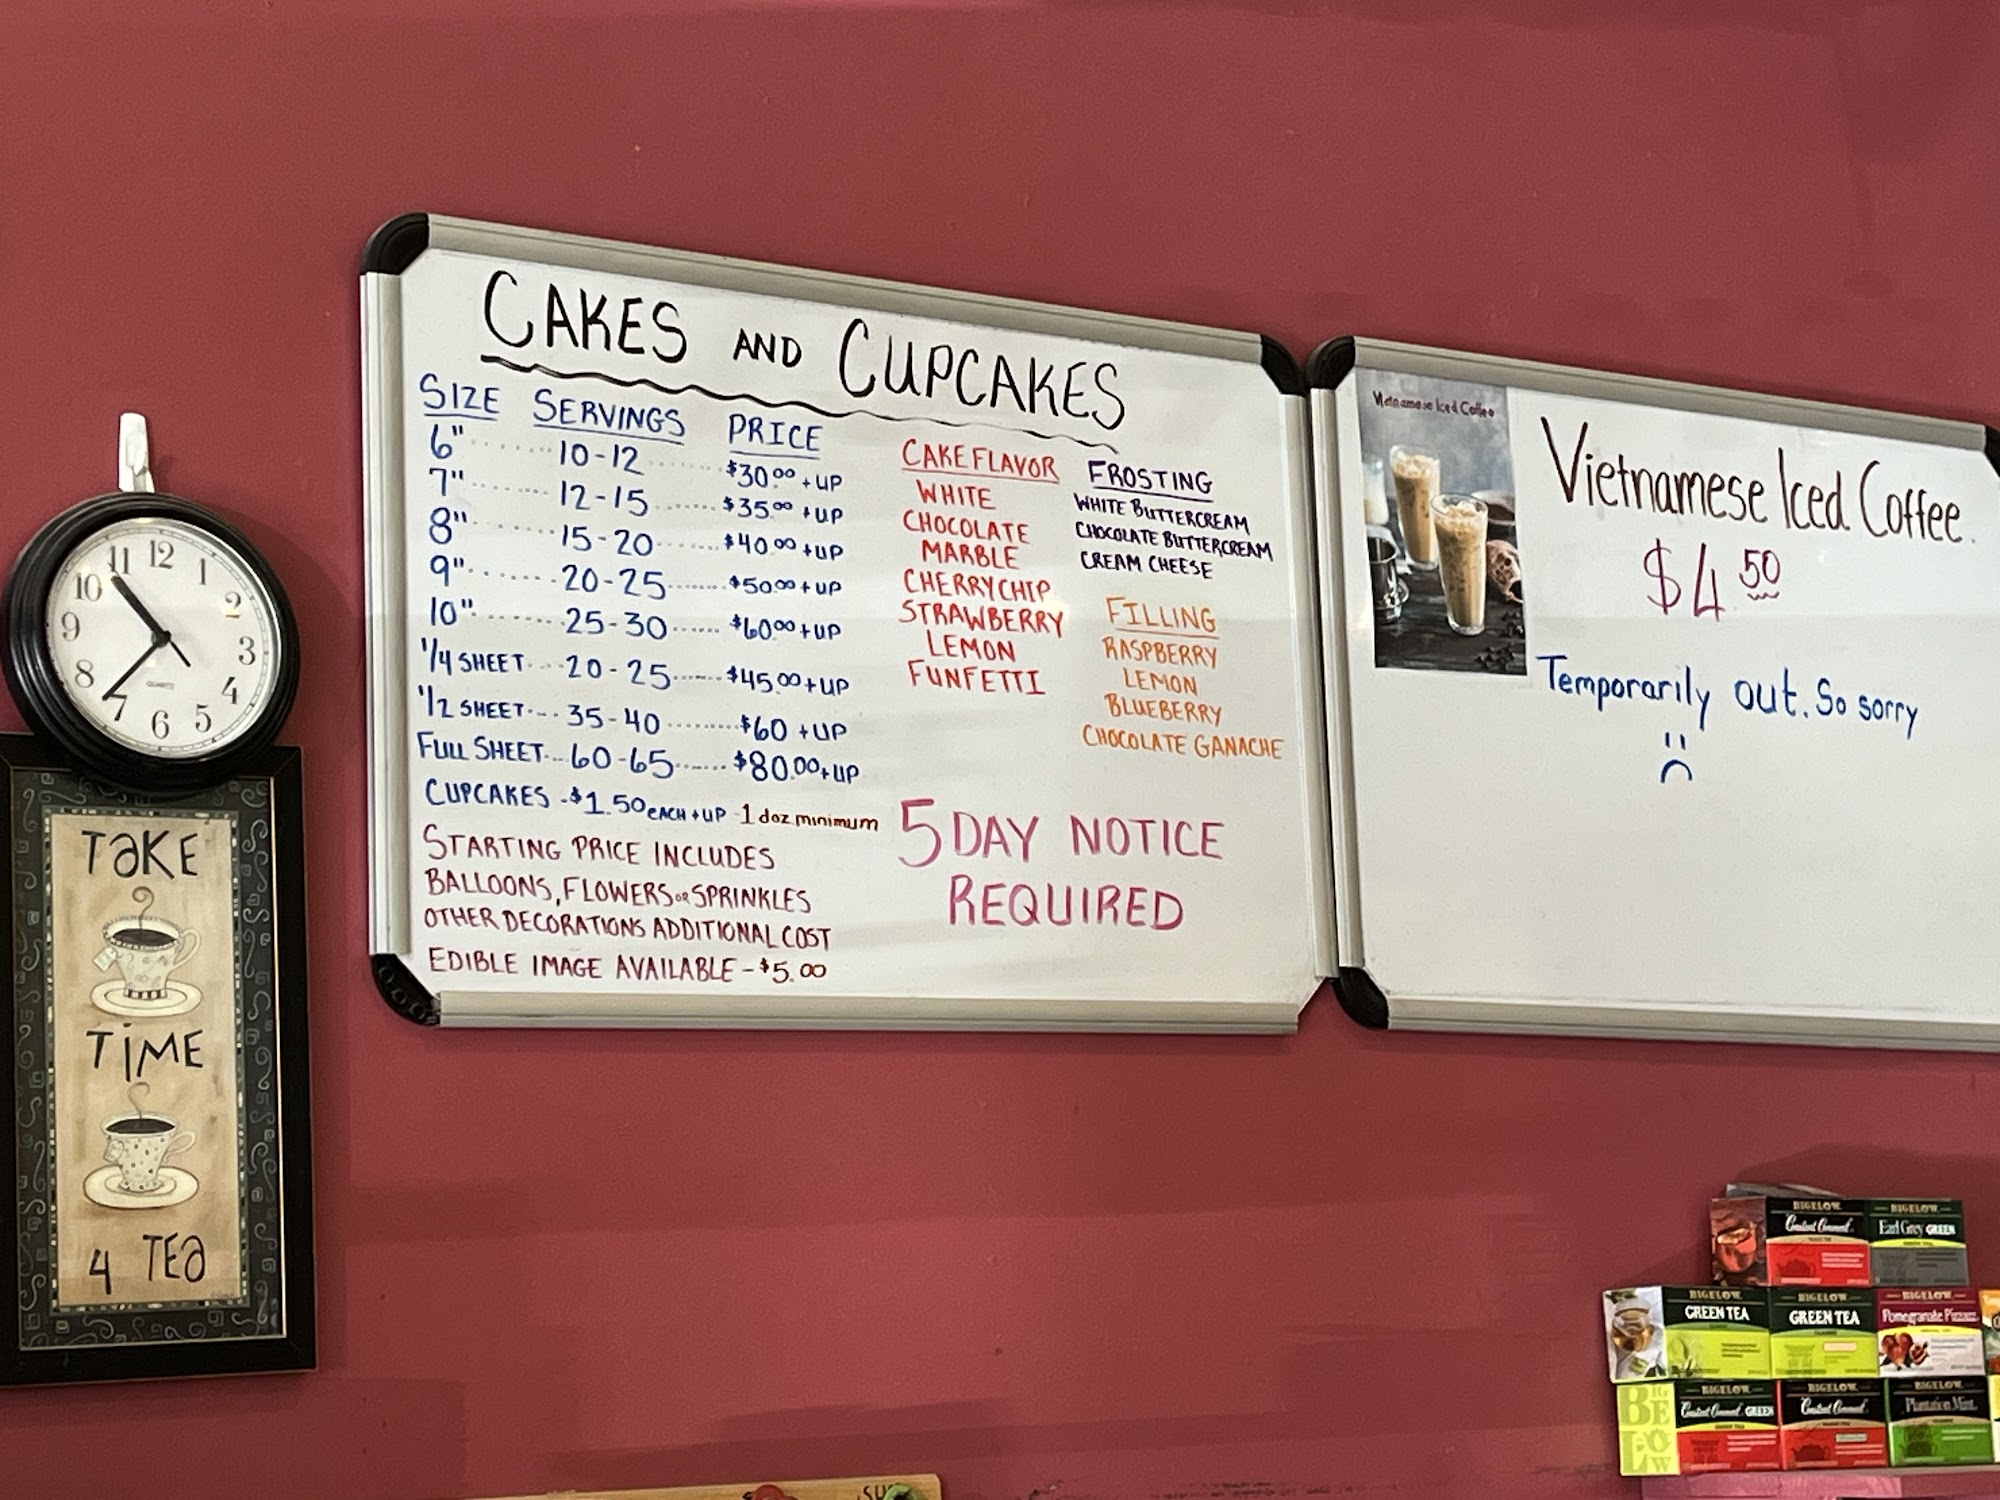 CAKES AND CUPCAKES
SIZE SERVINGS PRICE
6" 10-12 $30.00 + UP
7" 12-15 $35.00 + UP
8" 15-20 $40.00 + UP
9" 20-25 $50.00 + UP
10" 25-30 $60.00 + UP
1/4 SHEET 20-25 $45.00 + UP
1/2 SHEET 35-40 $60 + UP
FULL SHEET 60-65 $80.00 + UP
CUPCAKES - $1.50 EACH + UP - 1 doz minimum
STARTING PRICE INCLUDES
BALLOONS, FLOWERS OR SPRINKLES
OTHER DECORATIONS ADDITIONAL COST
EDIBLE IMAGE AVAILABLE - $5.00
CAKE FLAVOR
WHITE
CHOCOLATE
MARBLE
CHERRY CHIP
STRAWBERRY
LEMON
FUNFETTI
FROSTING
WHITE BUTTERCREAM
CHOCOLATE BUTTERCREAM
CREAM CHEESE
FILLING
RASPBERRY
LEMON
BLUEBERRY
CHOCOLATE GANACHE
5 DAY NOTICE
REQUIRED
Vietnamese Iced Coffee
Vietnamese Iced Coffee.
$4.50
Temporarily out. So sorry
12
1
2
3
4
5
6
7
8
9
10
11
QUARTZ
TAKE
TIME
4 TEA
BIGELOW
Constant Comment
BIGELOW
Earl Grey GREEN
BIGELOW
GREEN TEA
BIGELOW
GREEN TEA
BIGELOW
Pomegranate Pizzazz
BIGELOW
BIGELOW
Constant Comment GREEN
BIGELOW
Constant Comment
BIGELOW
Plantation Mint